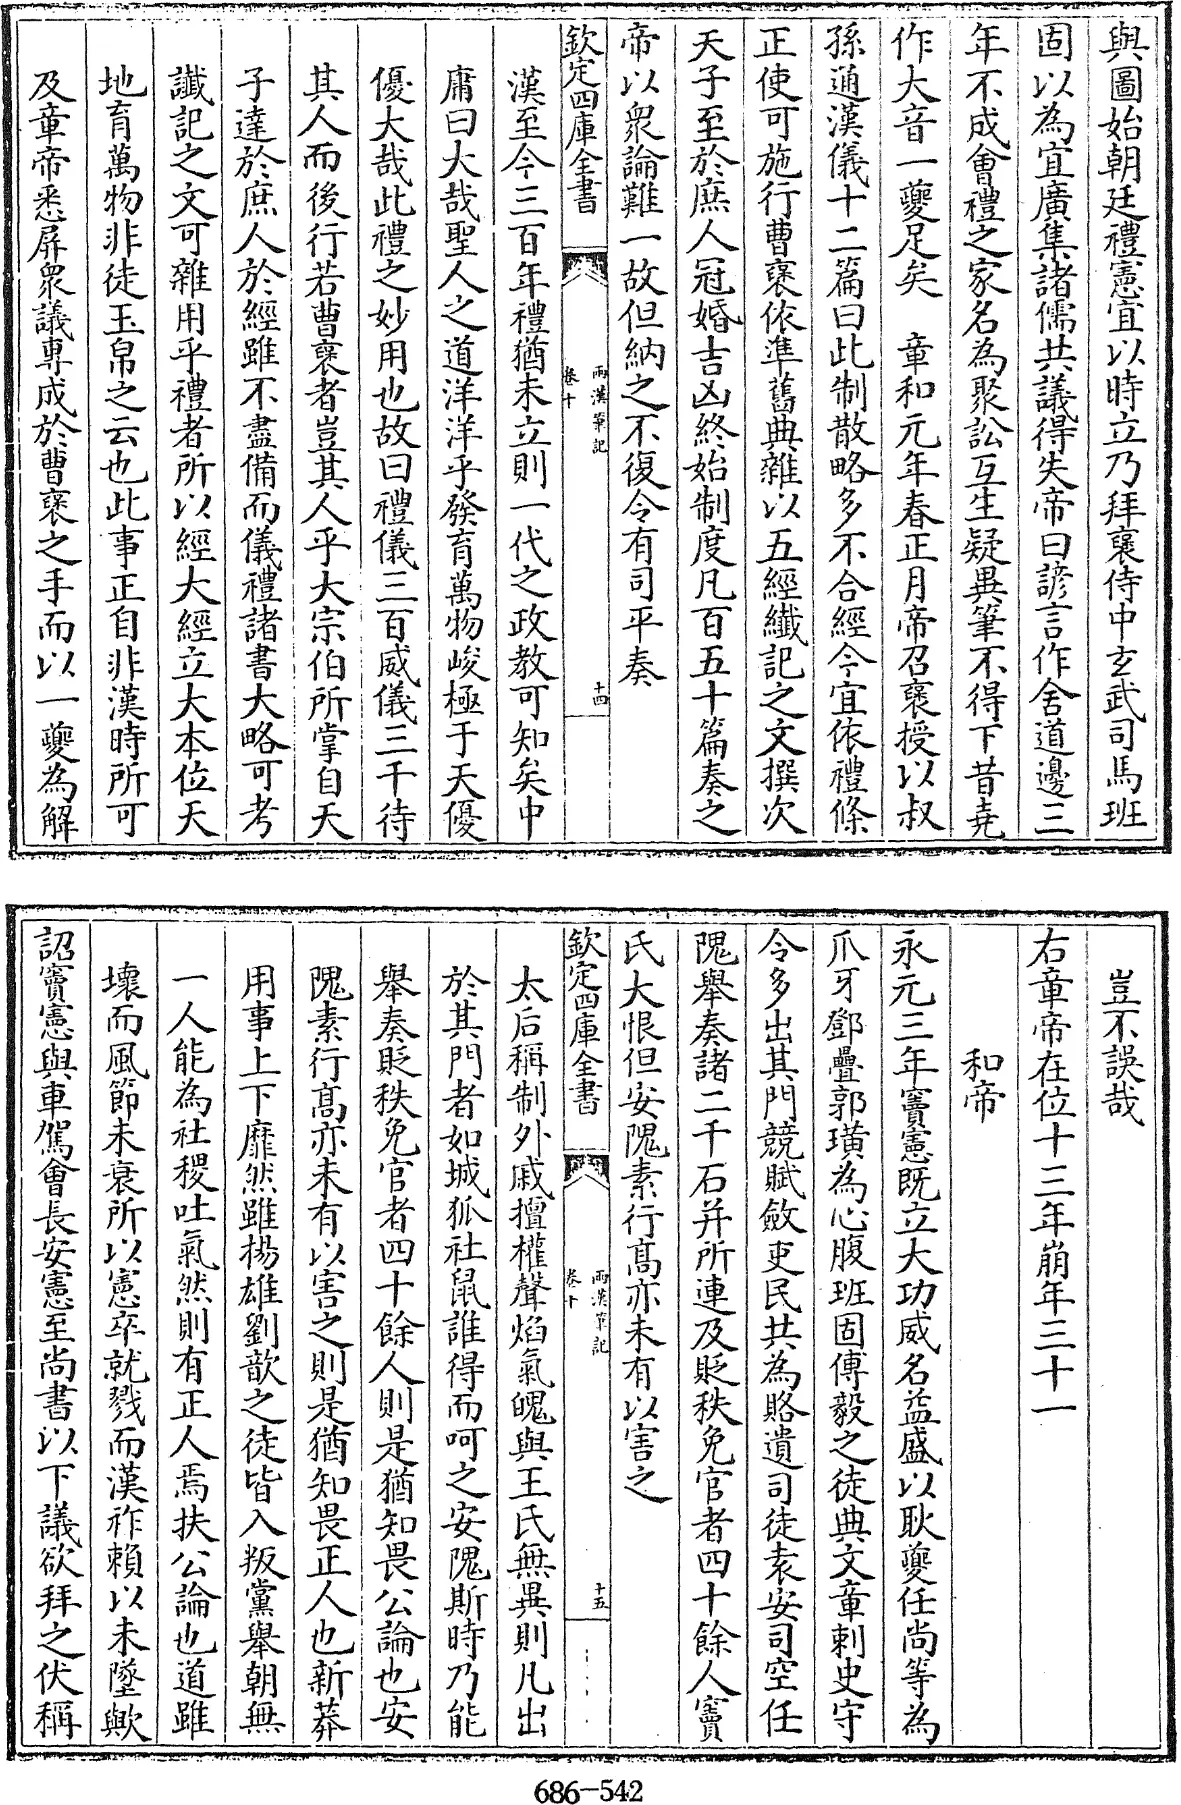 與圖始朝廷禮憲宜以時立乃拜襃侍中玄武司馬班
固以為宜廣集諸儒共議得失帝曰諺言作舍道邊三
年不成會禮之家名為聚訟互生疑異筆不得下昔堯
作大音一夔足矣　章和元年春正月帝召襃授以叔
孫通漢儀十二篇曰此制散略多不合經今宜依禮條
正使可施行曹襃依準舊典雜以五經纎記之文撰次
天子至於庶人冠婚吉凶終始制度凡百五十篇奏之
帝以衆論難一故但納之不復令有司平奏
欽定四庫全書
兩漢筆記
卷十
十四
漢至今三百年禮猶未立則一代之政教可知矣中
庸曰大哉聖人之道洋洋乎發育萬物峻極于天優
優大哉此禮之妙用也故曰禮儀三百威儀三千待
其人而後行若曹襃者豈其人乎大宗伯所掌自天
子達於庶人於經雖不盡備而儀禮諸書大略可考
讖記之文可雜用乎禮者所以經大經立大本位天
地育萬物非徒玉帛之云也此事正自非漢時所可
及章帝悉屏衆議專成於曹襃之手而以一夔為解
豈不誤哉
右章帝在位十三年崩年三十一
和帝
永元三年竇憲既立大功威名益盛以耿夔任尚等為
爪牙鄧疊郭璜為心腹班固傅毅之徒典文章刺史守
令多出其門競賦斂吏民共為賂遺司徒袁安司空任
隗舉奏諸二千石并所連及貶秩免官者四十餘人竇
氏大恨但安隗素行髙亦未有以害之
欽定四庫全書
兩漢筆記
卷十
十五
太后稱制外戚擅權聲焰氣魄與王氏無異則凡出
於其門者如城狐社鼠誰得而呵之安隗斯時乃能
舉奏貶秩免官者四十餘人則是猶知畏公論也安
隗素行髙亦未有以害之則是猶知畏正人也新莽
用事上下靡然雖楊雄劉歆之徒皆入叛黨舉朝無
一人能為社稷吐氣然則有正人焉扶公論也道雖
壞而風節未衰所以憲卒就戮而漢祚賴以未墜歟
詔竇憲與車駕會長安憲至尚書以下議欲拜之伏稱
686-542